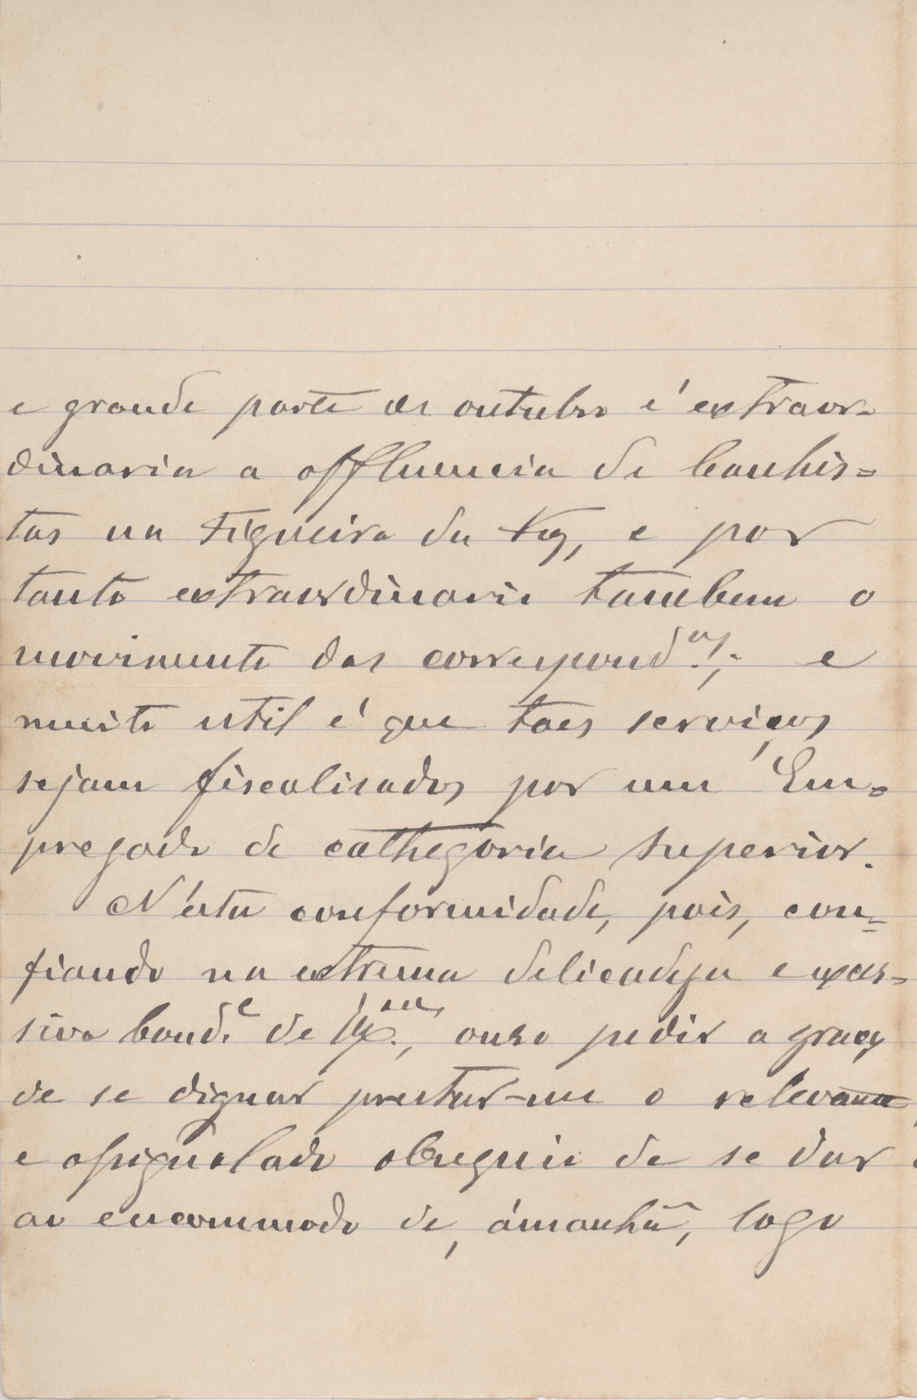 e grande parte de outubro é extraor-
dinaria a affluencia de banhis=
tas na Figueira da Foz, e por
tanto extraordinario tambem o
movimento das correspond.as; e
muito util é que taes serviços
sejam fiscalisados por um Em-
pregado de cathegoria superior.
N'esta conformidade, pois, con-
fiando na extrema delicadeza e exces-
siva bond.e de V. Ex.cia, ouso pedir a graça
de se dignar prestar-me o relevante
e assignalado obsequio de se dar
ao encommodo de, ámanhã, logo